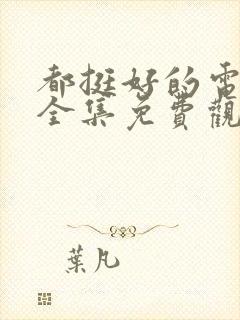 都挺好的電
全集免費觀
葉凡